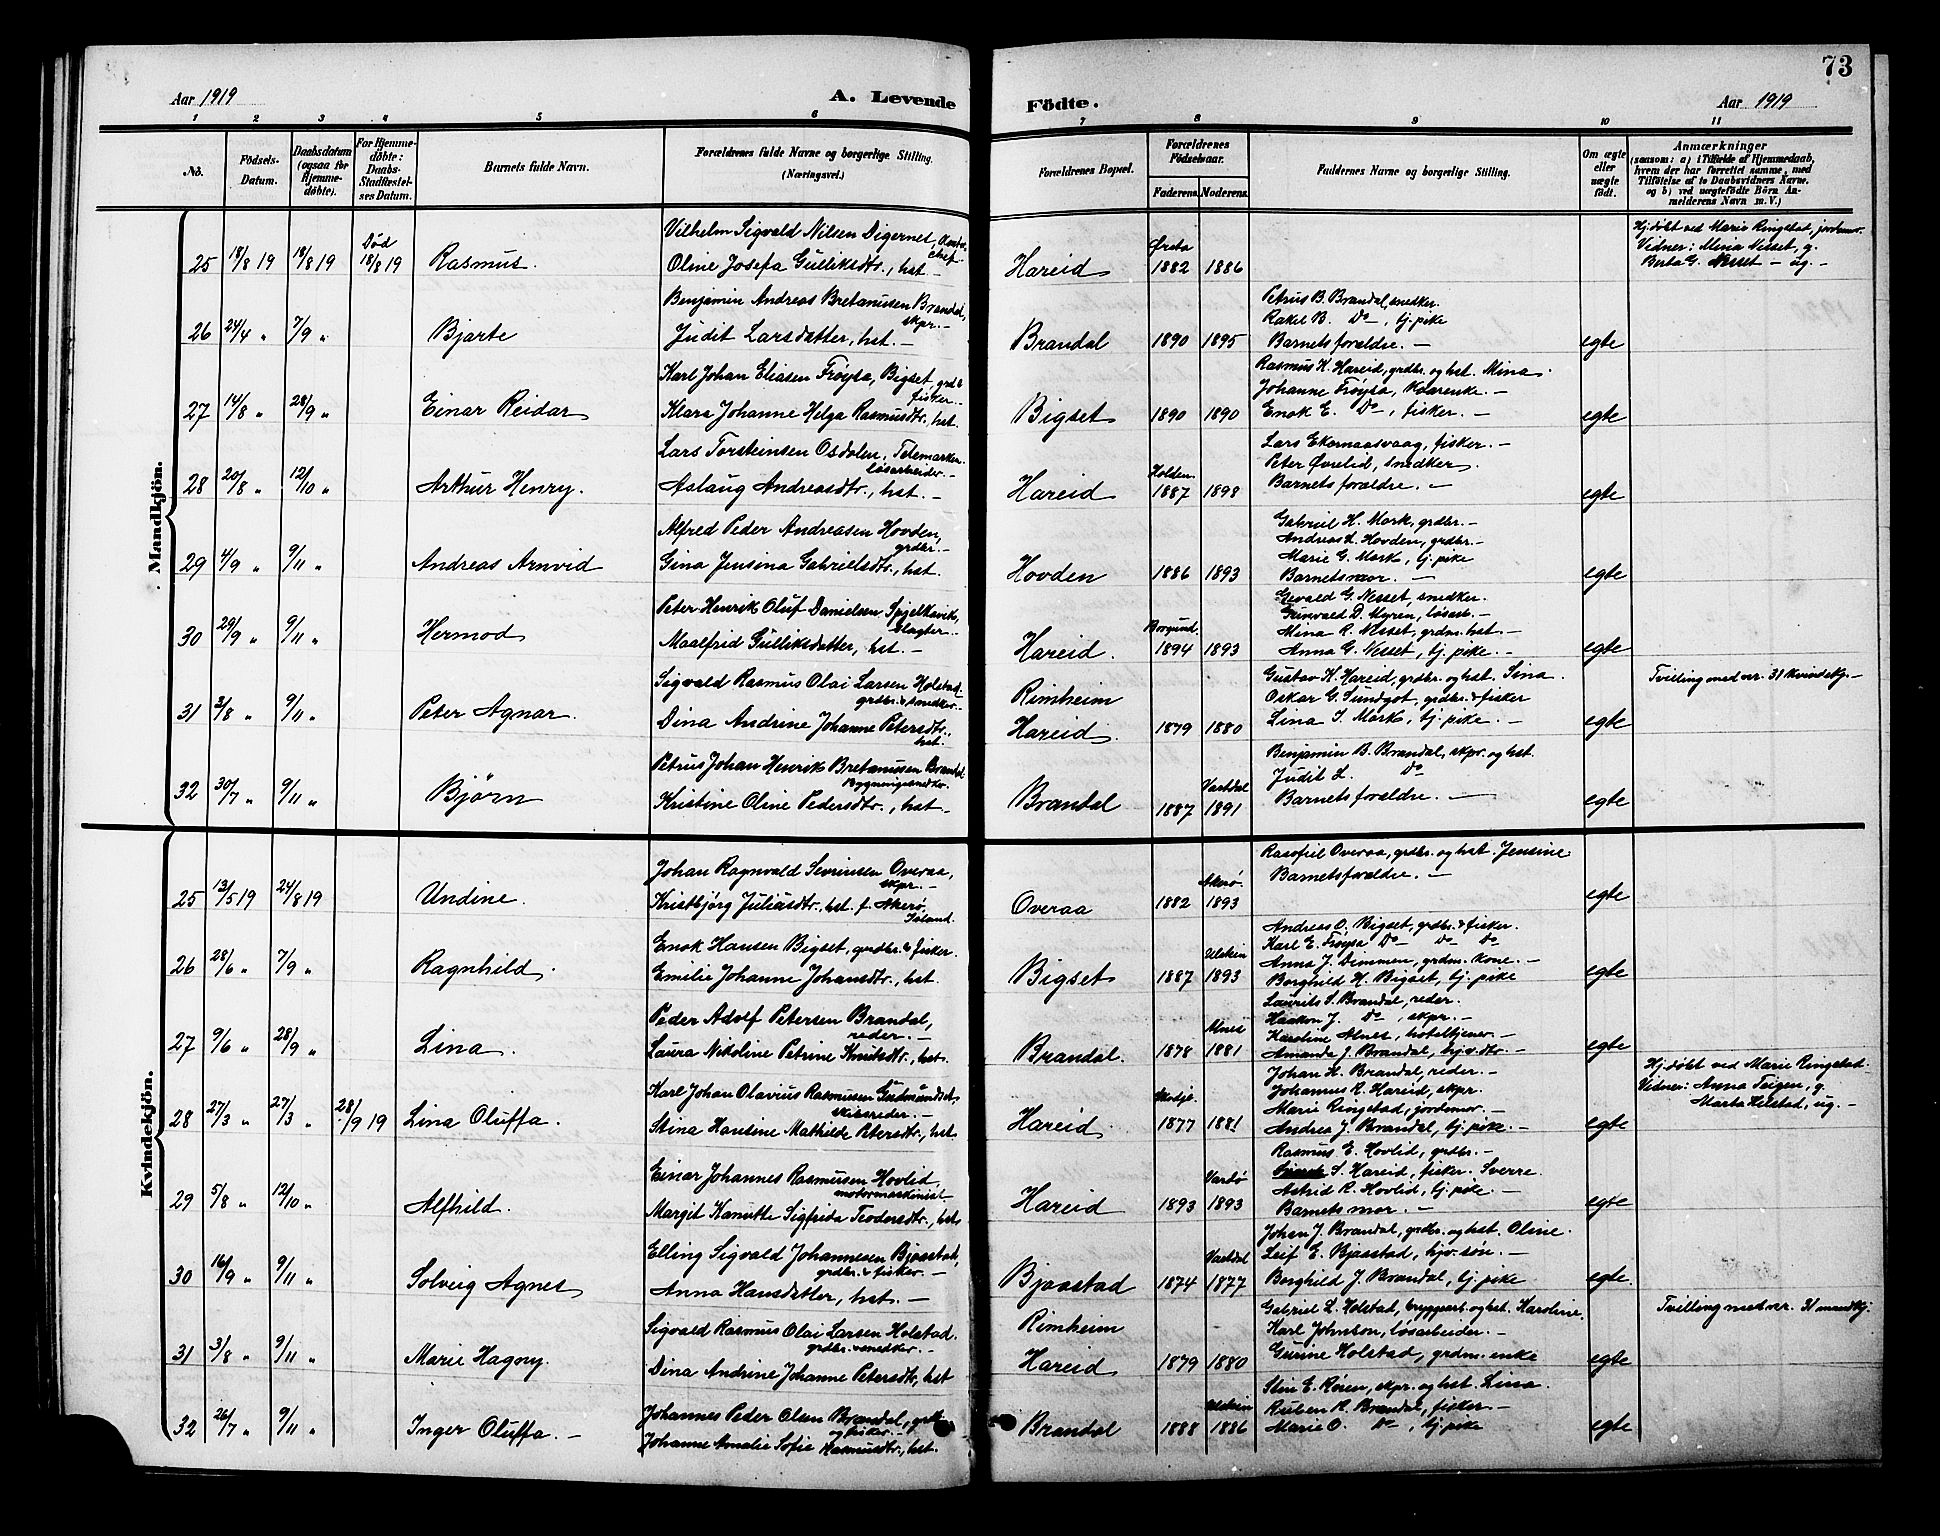 73
Aar 1919
A. Levende
Födte.
Aar 1919
1 2 3 4 5 6 7 8 9 10 11
No.
Födsels-Datum.
Daabsdatum (ogsaa for Hjemme-döbte).
For Hjemme-döbte: Daabs-Stadfæstel-ses Datum.
Barnets fulde Navn.
Forældrenes fulde Navne og borgerlige Stilling.
(Næringsvei.)
Forældrenes Bopæl.
Forældrenes Födselsaar.
Faderens. Moderens.
Faddernes Navne og borgerlige Stilling.
Om ægte eller uægte födt.
Anmærkninger
(saasom: a) i Tilfælde af Hjemmedaab,
hvem der har forrettet samme, med
Tilföielse af to Daabsvidners Navne,
og b) ved uægtefödte Börn An-
melderens Navn m. V.)
Mandkjön.
25 18/8 19 18/8 19 Død 18/8 19 Rasmus.
Vilhelm Sigvald Nilsen Digernes,
Oline Josefa Gulliksdtr., hst. –
Hareid Ørsta 1882 1886
Hj.døbt ved Marie Ringstad, jordemor.
Vidner: Mina Nesset, g.
Berta G. Nesset – ug. –
26 24/4 " 7/9 " Bjarte
Benjamin Andreas Bretanusen Brandal,
skpr. –
Judit Larsdatter, hst. –
Brandal 1890 1895
Petrus B. Brandal, snedker.
Rakel B. Do –, tj. pike
Barnets forældre. –
egte
27 14/8 " 28/9 " Einar Reidar
Karl Johan Eliasen Frøysa, Bigset, grdbr
fisker. –
Klara Johanne Helga Rasmusdtr., hst.
Bigset 1890 1890
Rasmus K. Hareid, grdbr. og hst. Mina.
Johanne Frøysa, Kaarenke. –
Enok E. Do –, fisker. –
egte
28 20/8 " 12/10 " Arthur Henry.
Lars Torsteinsen Osdalen, Telemarken
løsarbeider. –
Aslaug Andreasdtr., hst. –
Hareid Holden 1887 1898
Lars Ekornaasvaag, fisker. –
Peter Øvrelid, snedker.
Barnets forældre. –
egte
29 4/9 " 9/11 " Andreas Arnvid
Alfred Peder Andreasen Hovden,
grdbr. –
Gina Jensina Gabrielsdtr., hst.
Hovden 1886 1893
Gabriel H. Mork, grdbr. –
Andreas L. Hovden, grdbr. –
Marie G. Mork, tj. pike
Barnets mor. –
egte
30 29/9 " 9/11 " Hermod
Peter Henrik Oluf Danielsen Spjelkavik,
slagter. –
Maalfrid Gulliksdatter, hst. –
Hareid. Borgund. 1894 1893
Sevald G. Nesset, snedker.
Grinvald D. Myren, løsarb. –
Mina R. Nesset, grdm. hst. –
Anna G. Nesset, tj. pike. –
egte
31 3/8 " 9/11 " Peter Agnar.
Sigvald Rasmus Olai Larsen Holstad
grdbr. & snedker. –
Dina Andrine Johanne Petersdtr.,
hst.
Rimheim
Hareid. 1879 1880
Gustav K. Hareid, grdbr. og hst. Sina.
Oskar G. Sundgot, grdbr. & fisker
Lina S. Mork, tj. pike. –
egte
Tvilling med nr. 31 kvindekj. –
32 30/7 " 9/11 " Bjørn
Petrus Johan Henrik Bretanusen Brandal
Bygningssnedker.
Kristine Oline Pedersdtr., hst. –
Brandal Vartdal 1887 1891
Benjamin B. Brandal, skpr. og hst.
Judit L. Do
Barnets forældre. –
egte
Kvindekjön.
25 13/5 19 24/8 19 Undine.
Johan Ragnvald Sevrinsen Overaa,
skpr. –
Kristbjørg Juliusdtr., hst. f. Akerø,
Island.
Overaa Akerø. 1882 1893
Rasofiel Overaa, grdbr. og hst. Jensine
Barnets forældre. –
egte
26 28/6 " 7/9 " Ragnhild.
Enok Hansen Bigset, grdbr. & fisker.
Emilie Johanne Johansdtr., hst.
Bigset Ulstein 1887 1893
Andreas O. Bigset, grdbr. & fisker.
Karl E. Frøysa Do – Do Do
Anna J. Dimmen, grdm. kone. –
Borghild H. Bigset, tj. pike
egte
27 9/6 " 28/9 " Lina.
Peder Adolf Petersen Brandal,
reder. –
Laura Nikoline Petrine Knutsdtr., hst.
Brandal. Alnes 1878 1881
Laurits S. Brandal, reder.
Haakon J. Do –, skpr. –
Karoline Alnes, hotelltjener –
Amanda J. Brandal, hjv. dtr. –
egte
28 27/3 " 27/3 " 28/9 19 Lina Oluffa.
Karl Johan Olavius Rasmussen Gudmundset,
skibsreder. –
Stina Hansine Mathilde Petersdtr., hst.
Hareid. 1877 1881
Johan H. Brandal, reder. –
Johannes R. Hareid, skpr.
Marie Ringstad, jordemor. –
Andrea J. Brandal, tj. pike. –
egte
Hj.døbt ved Marie Ringstad.
Vidner: Anna Teigen, g.
Marta Helstad, ug. –
29 5/8 " 12/10 " Alfhild.
Einar Johannes Rasmusen Hovlid,
motormaskinist –
Margit Kanutte Sigfrida Teodorsdtr., hst.
Hareid Vardø 1893 1893
Rasmus E. Hovlid, grdbr. –
S. Hareid, fisker. Sverre.
Astrid R. Hovlid, tj. pike. –
Barnets mor. –
egte
30 16/9 " 9/11 " Solveig Agnes
Elling Sigvald Johannesen Bjaastad,
grdbr. & fisker. –
Anna Hansdatter, hst. –
Bjaastad Vartdal 1874 1877
Johan J. Brandal, grdbr. og hst. Oline.
Leif E. Bjaastad, hjv. søn. –
Borghild J. Brandal, tj. pike
egte.
31 3/8 " 9/11 " Marie Hagny.
Sigvald Rasmus Olai Larsen Holstad.
grdbr. & snedker. –
Dina Andrine Johanne Petersdtr., hst
Rimheim
Hareid 1879 1880
Gabriel L. Holstad, bryggearb. og hst. Karoline.
Karl Johnson, løsarbeider. –
Gurine Holstad, grdm. enke
egte
Tvilling med nr. 31 mandkj.
32 26/7 " 9/11 " Inger Oluffa. –
Johannes Peder Olsen Brandal, grdbr
og fisker –
Johanne Amalie Sofie Rasmusdtr., hst.
Brandal Ulstein 1888 1886
Stin E. Røren, skpr. og hst. Lina.
Ruben R. Brandal, fisker. –
Marie O. Do –, tj. pike
egte